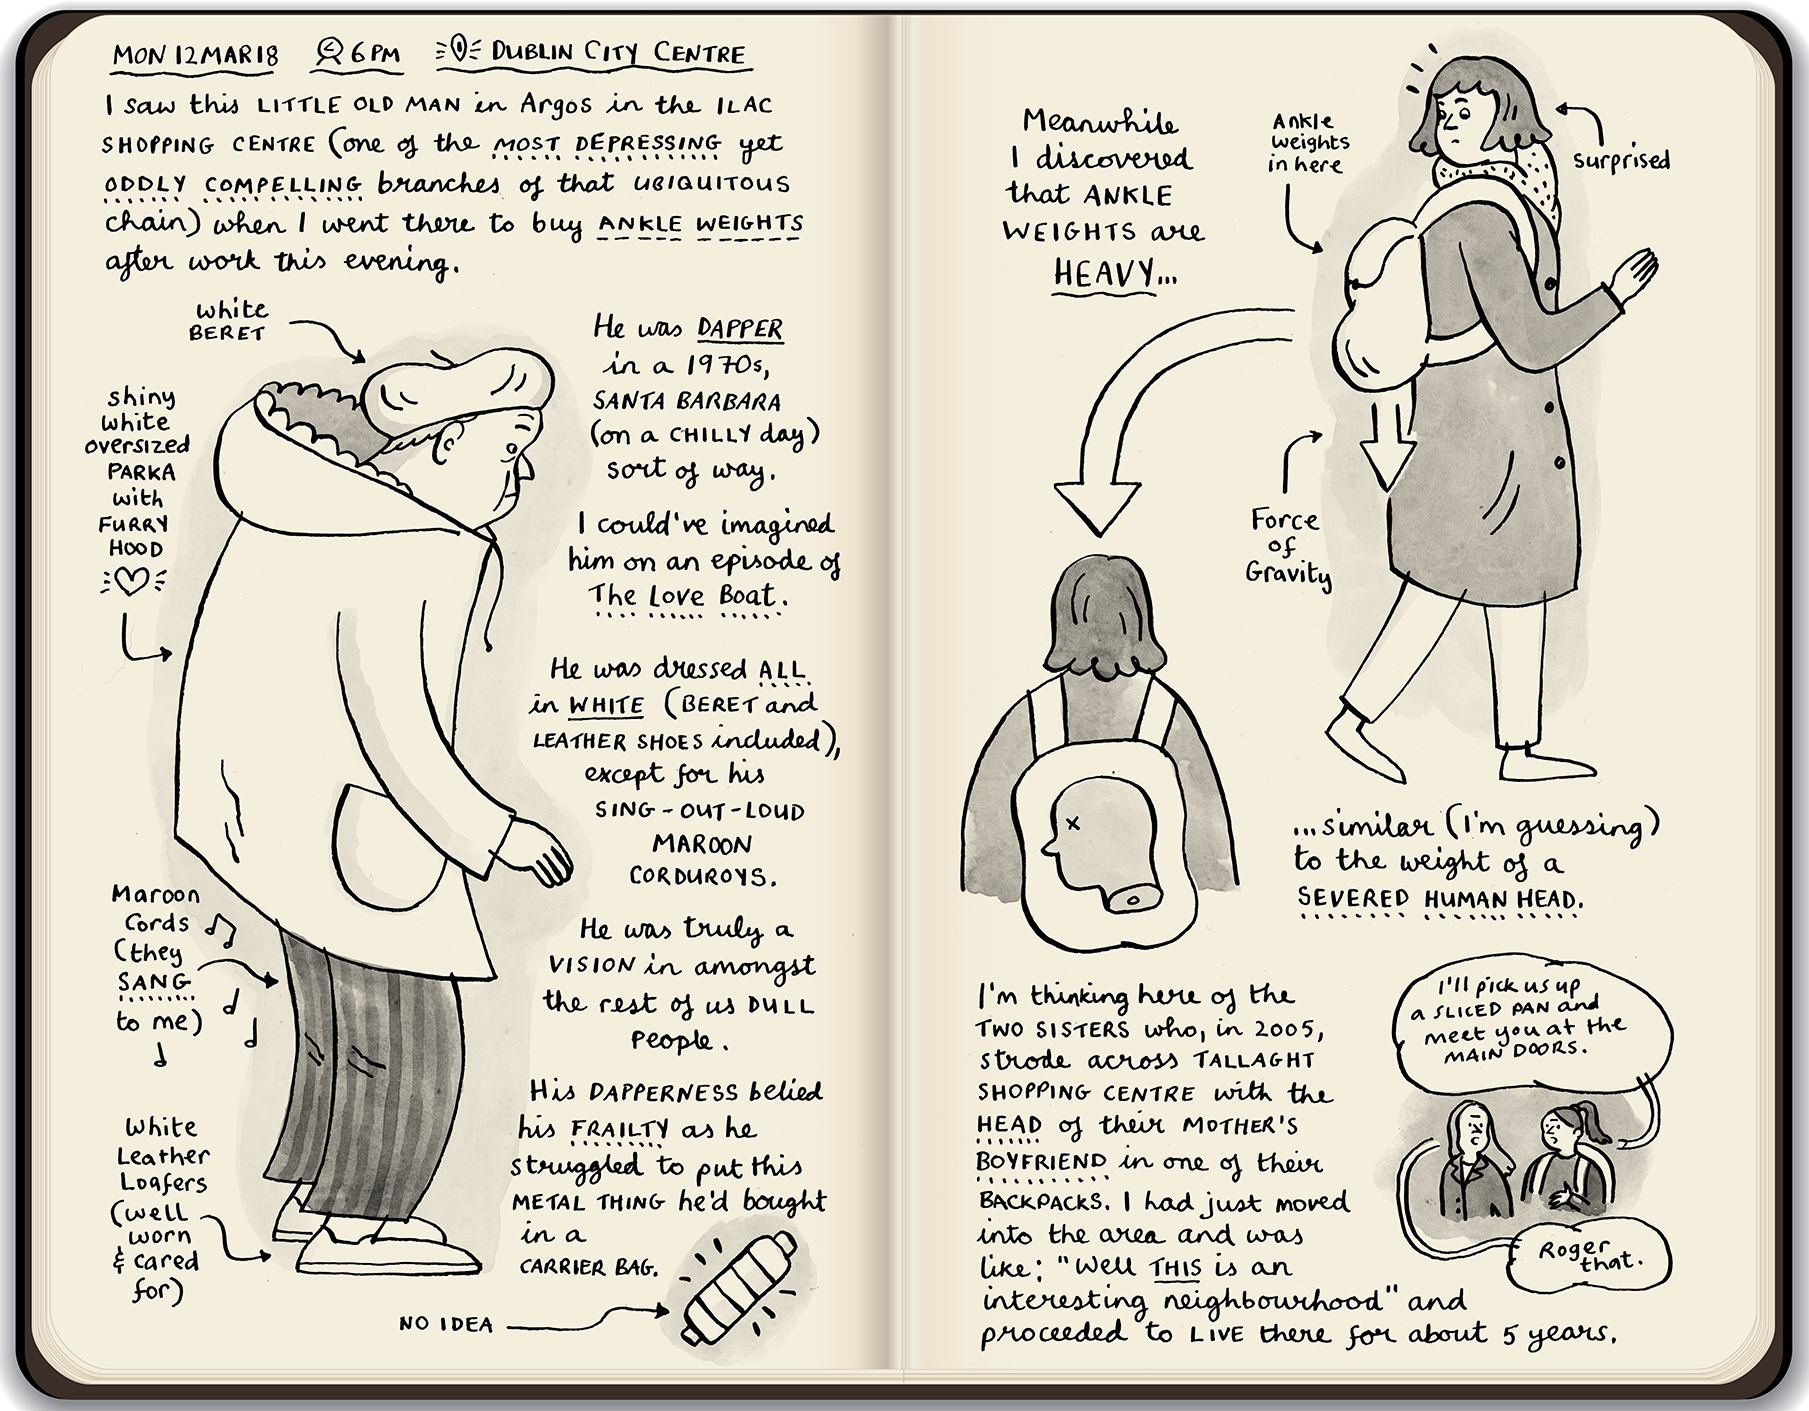 MON 12 MAR 18 6PM DUBLIN CITY CENTRE
I saw this LITTLE OLD MAN in Argos in the ILAC
SHOPPING CENTRE (one of the MOST DEPRESSING yet
ODDLY COMPELLING branches of that UBIQUITOUS
chain) when I went there to buy ANKLE WEIGHTS
after work this evening.
white
BERET
shiny
white
oversized
PARKA
with
FURRY
HOOD
He was DAPPER
in a 1970s,
SANTA BARBARA
(on a CHILLY day)
sort of way.
I could've imagined
him on an episode of
The Love Boat.
He was dressed ALL
in WHITE (BERET and
LEATHER SHOES included),
except for his
SING-OUT-LOUD
MAROON
CORDUROYS.
Maroon
Cords
(they
SANG
to me)
He was truly a
VISION in amongst
the rest of us DULL
People.
His DAPPERNESS belied
his FRAILTY as he
struggled to put this
METAL THING he'd bought
in a
CARRIER BAG.
White
Leather
Loafers
(well
worn
& cared
for)
NO IDEA
Meanwhile
I discovered
that ANKLE
WEIGHTS are
HEAVY...
Ankle
weights
in here
surprised
Force
of
Gravity
...similar (I'm guessing)
to the weight of a
SEVERED HUMAN HEAD.
I'm thinking here of the
TWO SISTERS who, in 2005,
strode across TALLAGHT
SHOPPING CENTRE with the
HEAD of their MOTHER'S
BOYFRIEND in one of their
BACKPACKS. I had just moved
into the area and was
like: "Well THIS is an
interesting neighbourhood" and
proceeded to LIVE there for about 5 years.
I'll pick us up
a SLICED PAN and
meet you at the
MAIN DOORS.
Roger
that.